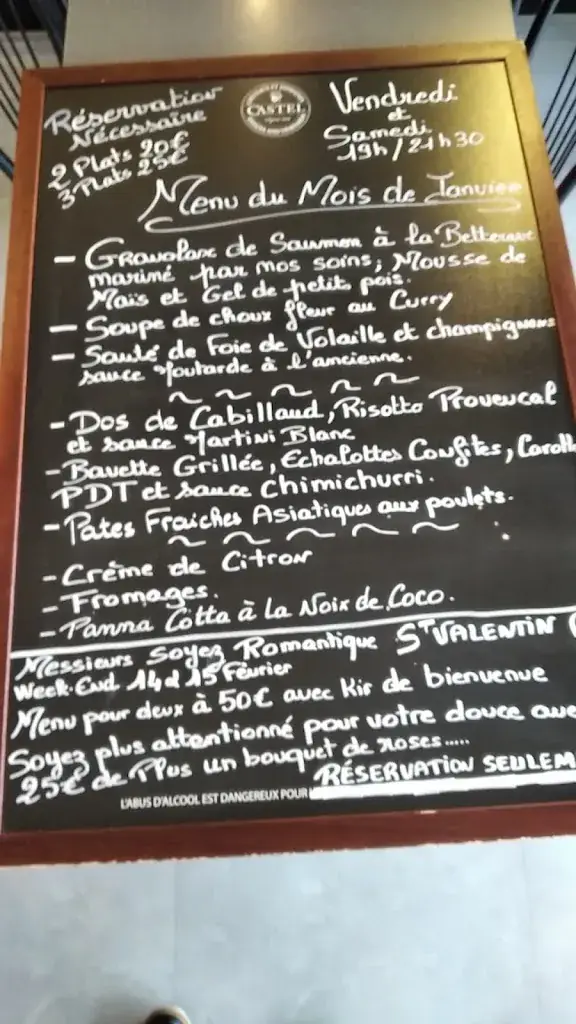 Réservation
Nécessaire
2 Plats 20€
3 Plats 25€
CASTEL
Vendredi
et
Samedi
19h/21h30
Menu du Mois de Janvier
- Gravolax de Saumon à la Betterave
mariné par mos soins; Mousse de
Maïs et Gel de petit pois.
- Soupe de choux fleur au Curry
- Sauté de Foie de Volaille et champignons
sauce Moutarde à l'ancienne.
- Dos de Cabillaud, Risotto Provencal
et sauce Martini Blanc
- Bavette Grillée, Echalottes Confites, Carott
PDT et sauce Chimichurri.
- Pates Fraiches Asiatiques aux poulets.
- Crème de Citron
- Fromages.
- Panna Cotta à la Noix de Coco.
Messieurs Soyez Romantique ST VALENTIN
Week-End 14 et 15 Février
Menu pour deux à 50€ avec Kir de bienvenue
Soyez plus attentionné pour votre douce ave
25€ de Plus un bouquet de roses.....
RÉSERVATION SEULEM
L'ABUS D'ALCOOL EST DANGEREUX POUR